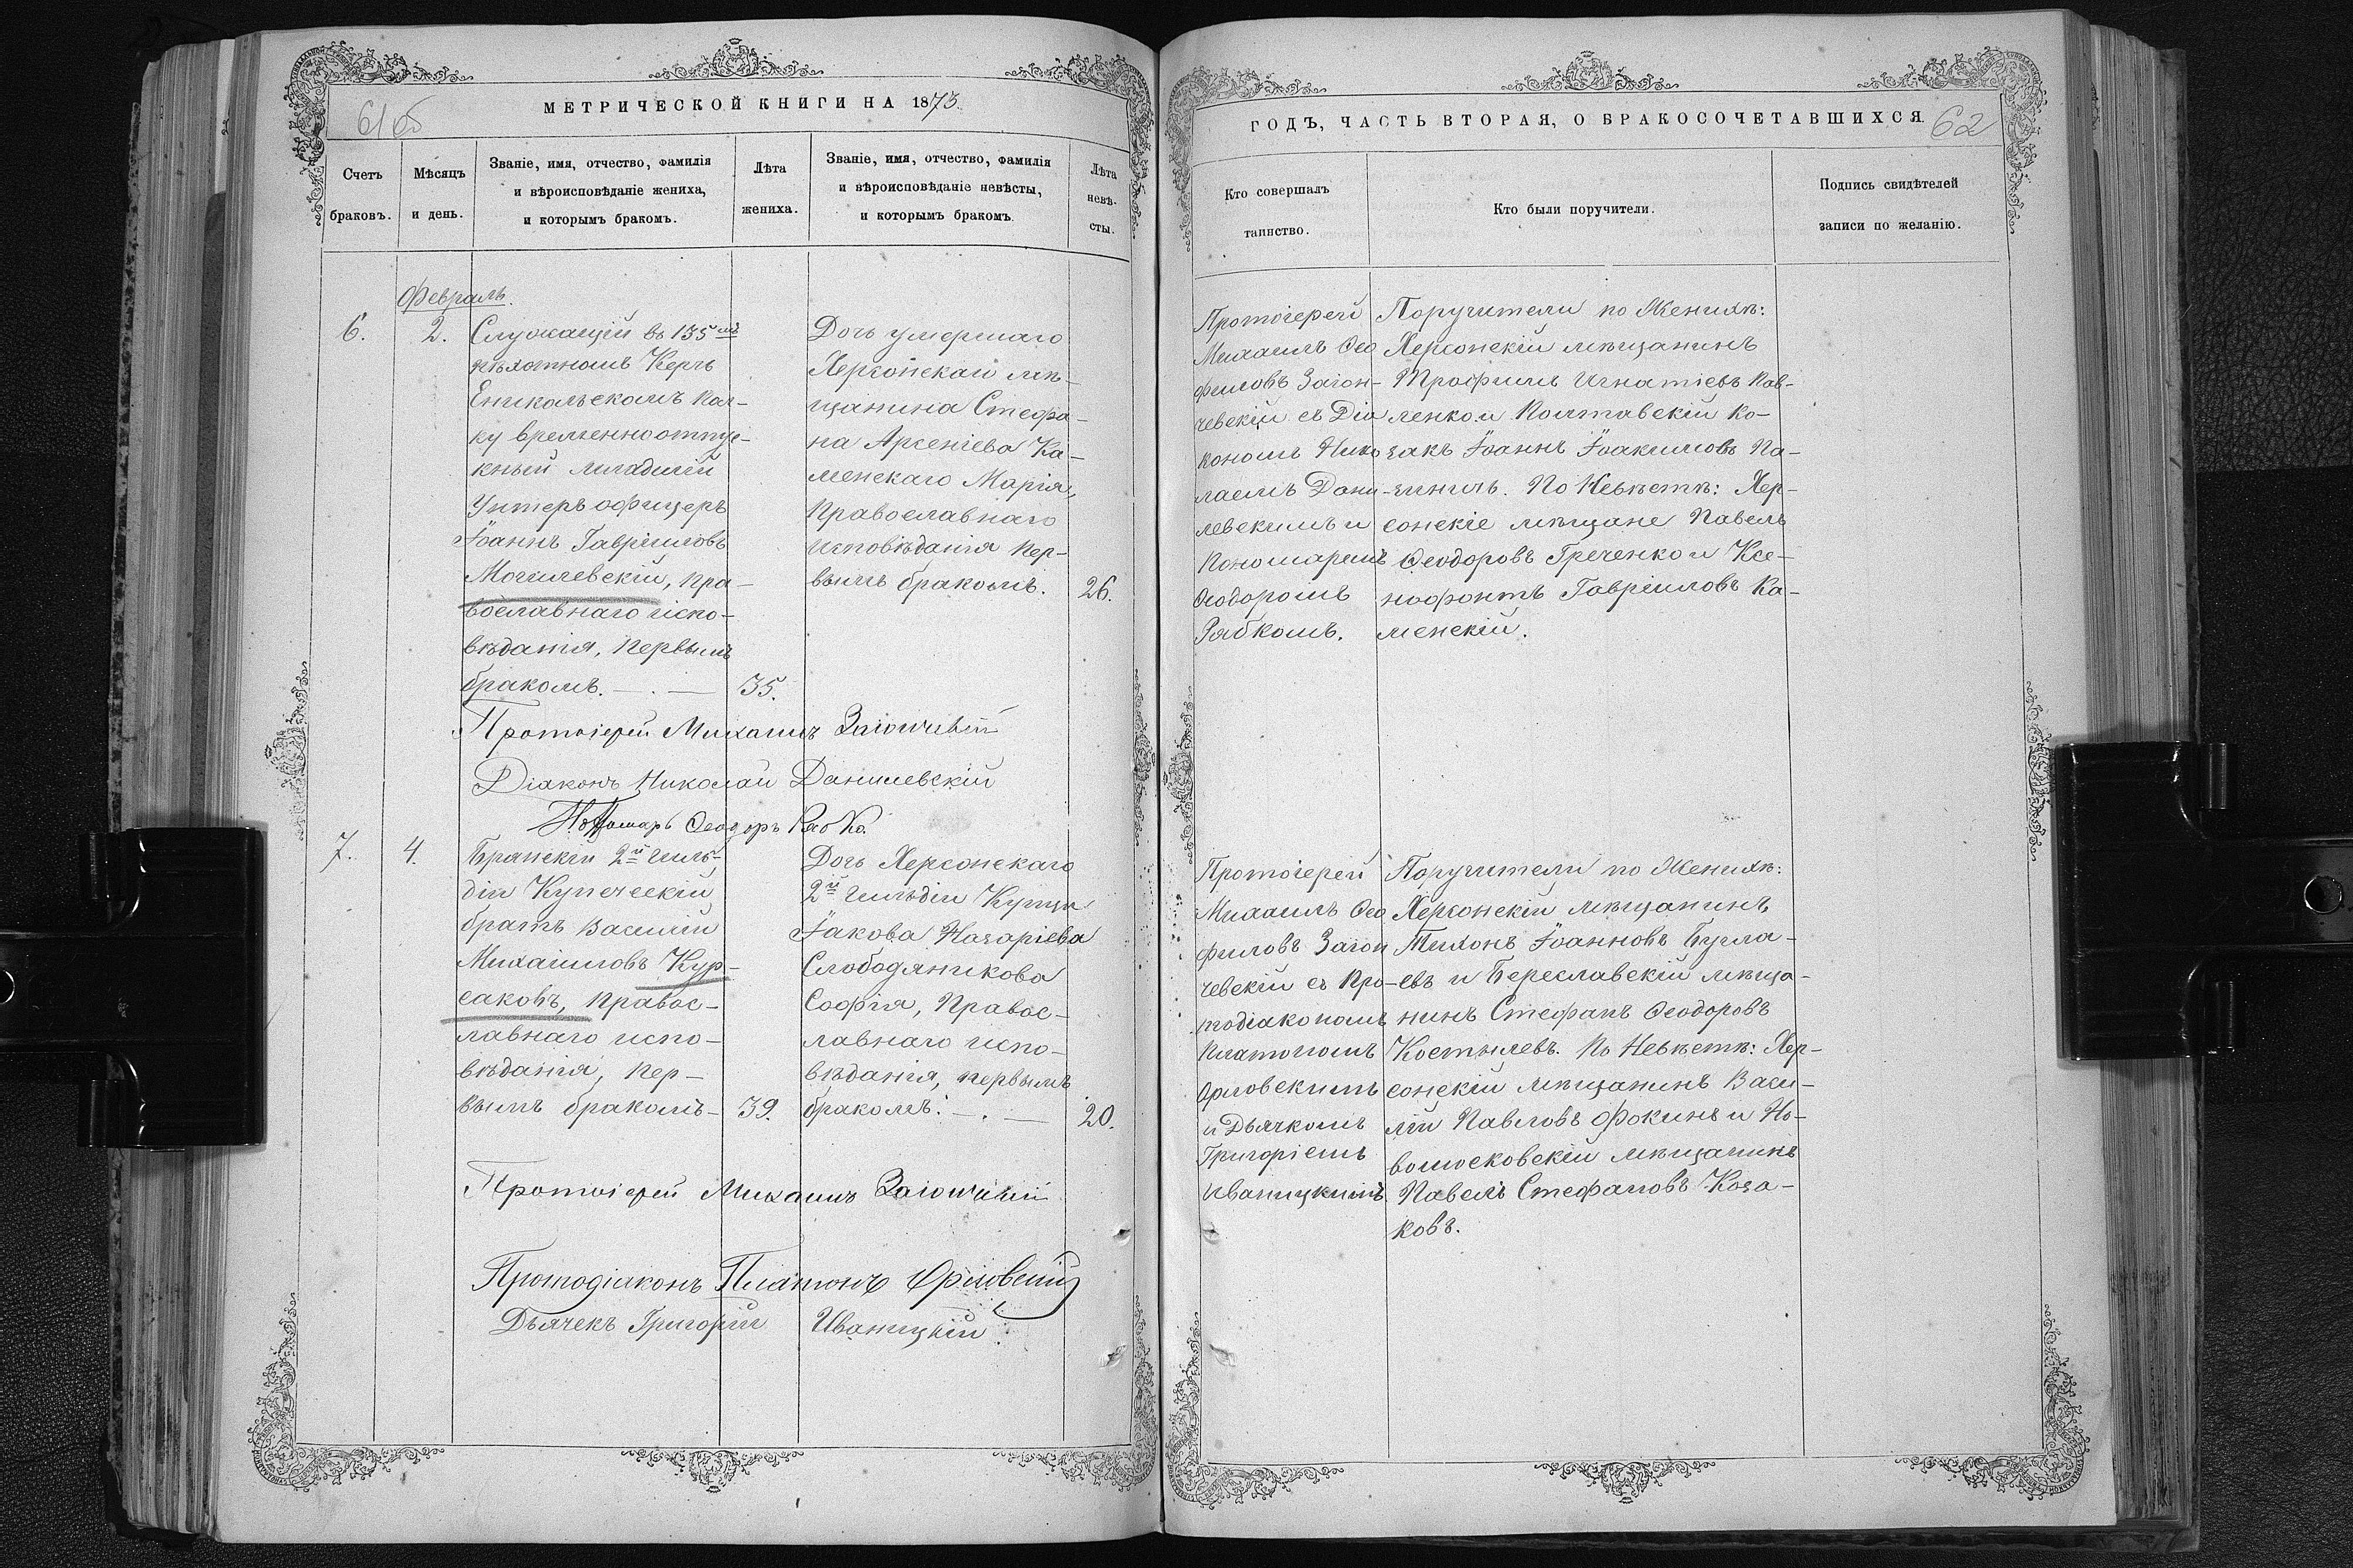 61об
МЕТРИЧЕСКОЙ КНИГИ НА 1873
Счетъ браковъ.
Мѣсяцъ и день.
Званіе, имя, отчество, фамилія
и вѣроисповѣданіе жениха,
и которымъ бракомъ.
Лѣта жениха.
Званіе, имя, отчество, фамилія
и вѣроисповѣданіе невѣсты,
и которымъ бракомъ.
Лѣта невѣ-
сты.
Февраль.
6.
2.
Служащій въ 135мъ
пѣхотномъ Керчь
Еникальскомъ пол-
ку временноотпус-
кный младшій
Унтеръ офицеръ
Іоаннъ Гавріиловъ
Могилевскій, пра-
вославнаго испо-
вѣданія, первымъ
бракомъ.
35.
Дочь умершаго
Херсонскаго мѣ-
щанина Стефа-
на Арсеніева Ка-
менскаго Марія,
Православнаго
исповѣданія пер-
вымъ бракомъ.
26.
Протоіерей Михаилъ Загончевскій
Діаконъ Николай Данилевскій
Пономарь Ѳеодоръ Рябко.
7.
4.
Брянскій 2й гиль-
діи Купеческій
братъ Василій
Михаиловъ Кур-
саковъ, правос-
лавнаго испо-
вѣданія, пер-
вымъ бракомъ
39.
Дочь Херсонскаго
2й гильдіи Купца
Іакова Назаріева
Слободяникова
Софія, Правос-
лавнаго испо-
вѣданія, первымъ
бракомъ.
20.
Протоіерей Михаилъ Загончевскій
Протодіаконъ Платонъ Орловскій
Дьячекъ Григорій Иваницкій.
ГОДЪ, ЧАСТЬ ВТОРАЯ, О БРАКОСОЧЕТАВШИХСЯ.
62
Кто совершалъ
таинство.
Кто были поручители.
Подпись свидѣтелей
записи по желанію.
Протоіерей
Михаилъ Ѳео
филовъ Загон-
чевскій съ Діа
кономъ Нико
лаемъ Дани-
левскимъ и
Пономаремъ
Ѳеодоромъ
Рябкомъ.
Поручители по Женихѣ:
Херсонскій мѣщанинъ
Трофимъ Игнатіевъ Пав-
ленко и Полтавскій ко-
закъ Іоаннъ Іоакимовъ Па-
зиничъ. По Невѣстѣ: Хер-
сонскіе мѣщане Павелъ
Ѳеодоровъ Греченко и Ксе-
нофонтъ Гавріиловъ Ка-
менскій.
Протоіерей
Михаилъ Ѳео
филовъ Загон
чевскій съ Про-
тодіакономъ
Платономъ
Орловскимъ
и Дьячкомъ
Григоріемъ
Иваницкимъ
Поручители по Женихѣ:
Херсонскій мѣщанинъ
Тихонъ Іоанновъ Бугла-
евъ и Береславскій мѣща-
нинъ Стефанъ Ѳеодоровъ
Костылевъ. По Невѣстѣ: Хер-
сонскій мѣщанинъ Васи-
лій Павловъ Фокинъ и Но-
вомосковскій мѣщанинъ
Павелъ Стефановъ Коза-
ковъ.